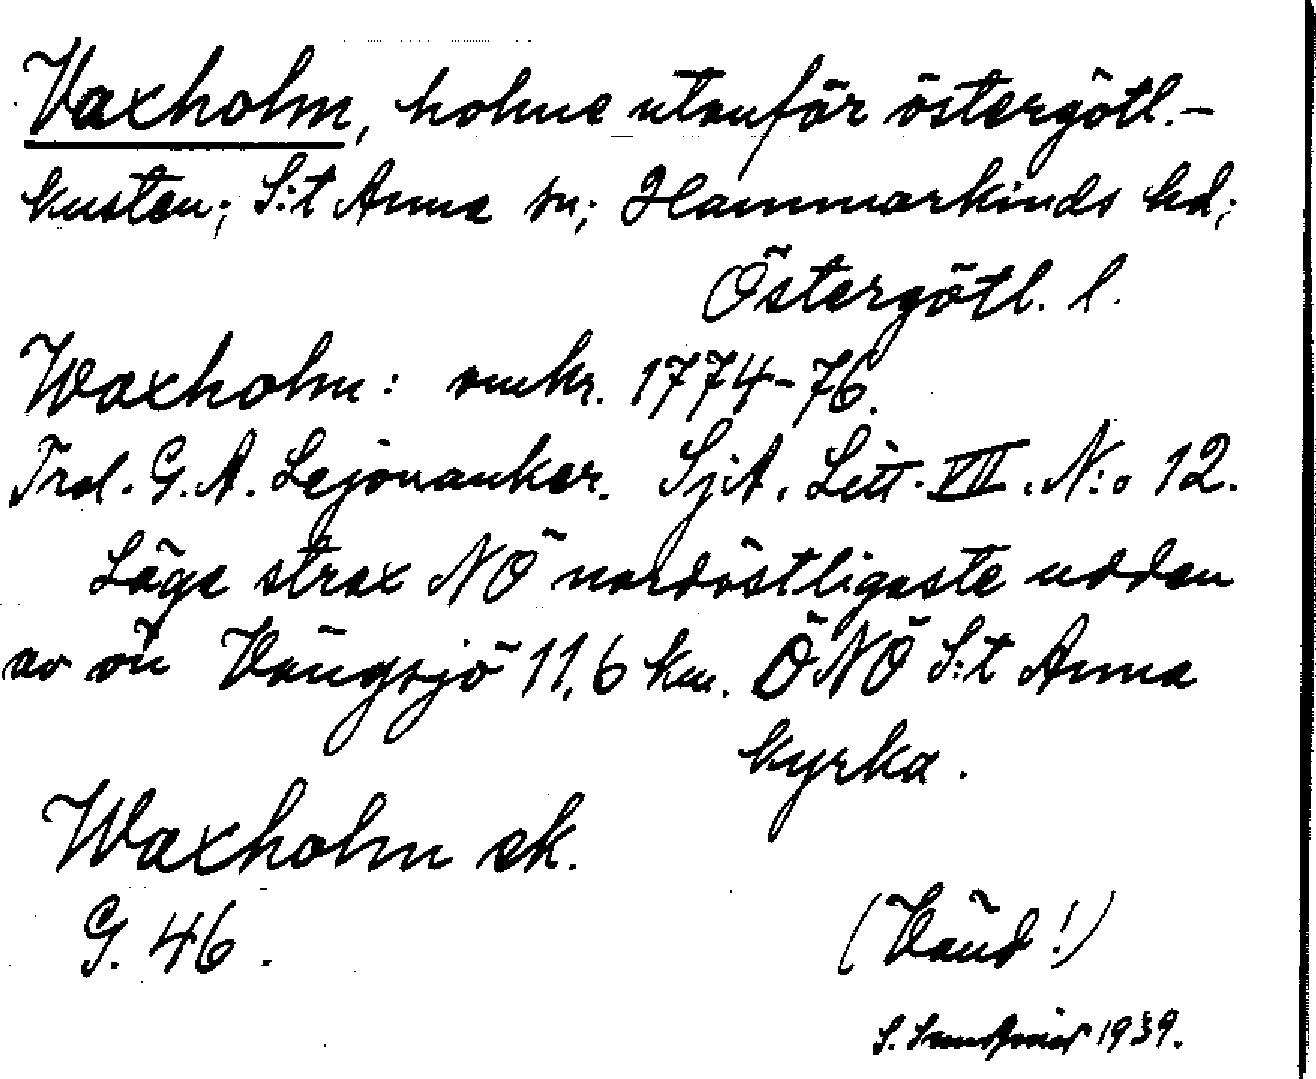 Vaxholm, holme utanför östergötl.-
kusten; S:t Anna sn; Hammarkinds hd;
Östergötl. l.
Waxholm: omkr. 1774-76.
Frol. G. A. Lejonanker. SjA. Litt. VII. N:o 12.
Läge strax NÖ nordöstligaste udden
av ön Vängsjö 11,6 km. ÖNÖ S:t Anna
kyrka.
Waxholm ek.
G. 46.
(Vänd!)
S. 1939.